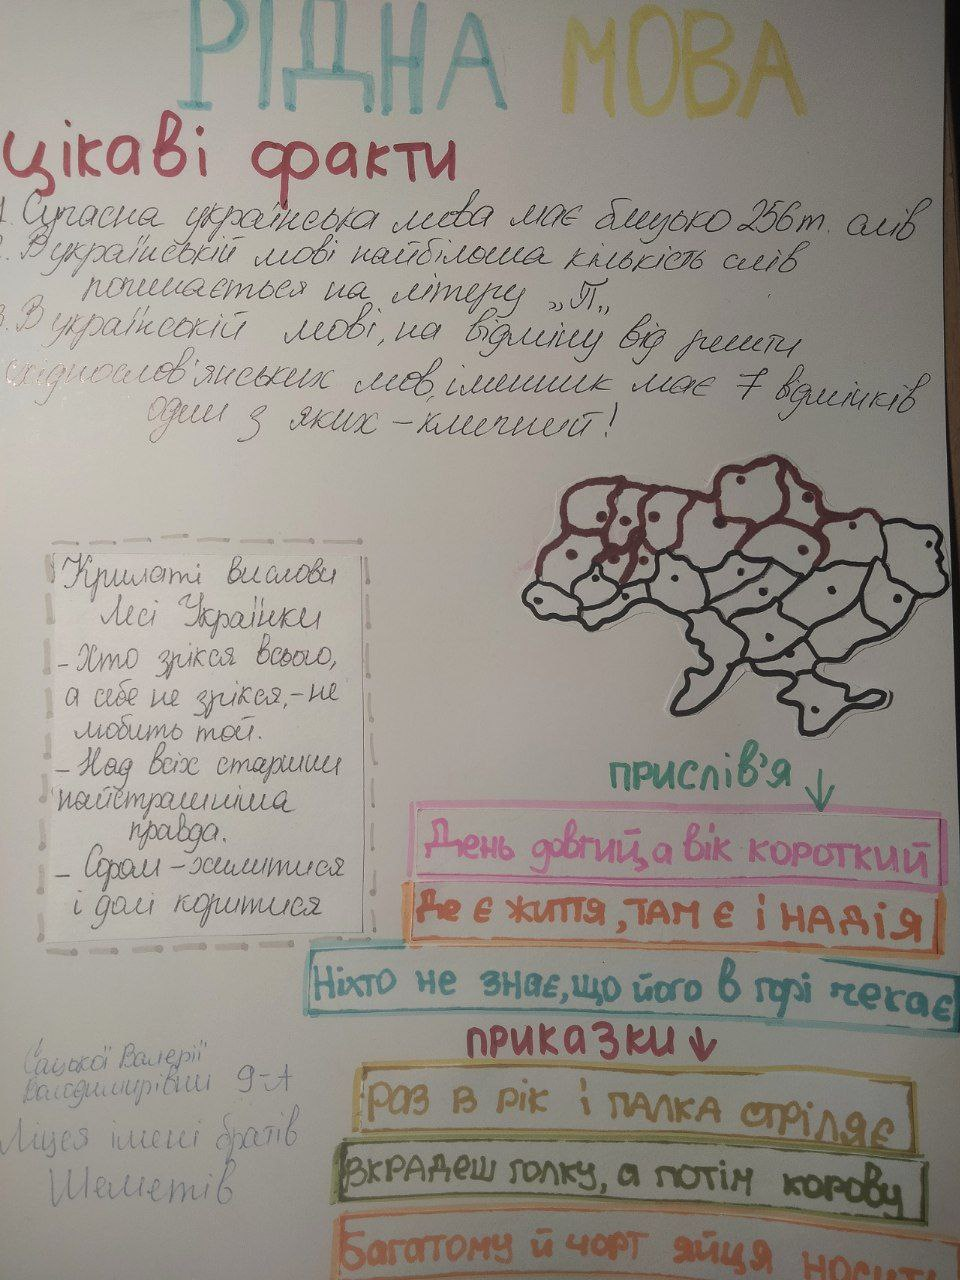 РІДНА МОВА
цікаві факти
1. Сучасна українська мова має близько 256 т. слів
2. В українській мові найбільша кількість слів
починається на літеру „П„
3. В українській мові, на відміну від решти
східнослов'янських мов, іменник має 7 відмінків
один з яких – кличний!
Крилаті вислови
Лесі Українки
– Хто зрікся всього,
а себе не зрікся, – не
любить той.
– Над всіх старший
найстрашніша
правда.
– Сором – хилитися
і долі коритися
прислів'я ↓
День довгий, а вік короткий
Де є життя, там є і надія
Ніхто не знає, що його в горі чекає
приказки ↓
Раз в рік і палка стріляє
Вкрадеш голку, а потім корову
Багатому й чорт яйця носить
Валерії
Володимирівни 9-А
Ліцея імені братів
Шеметів